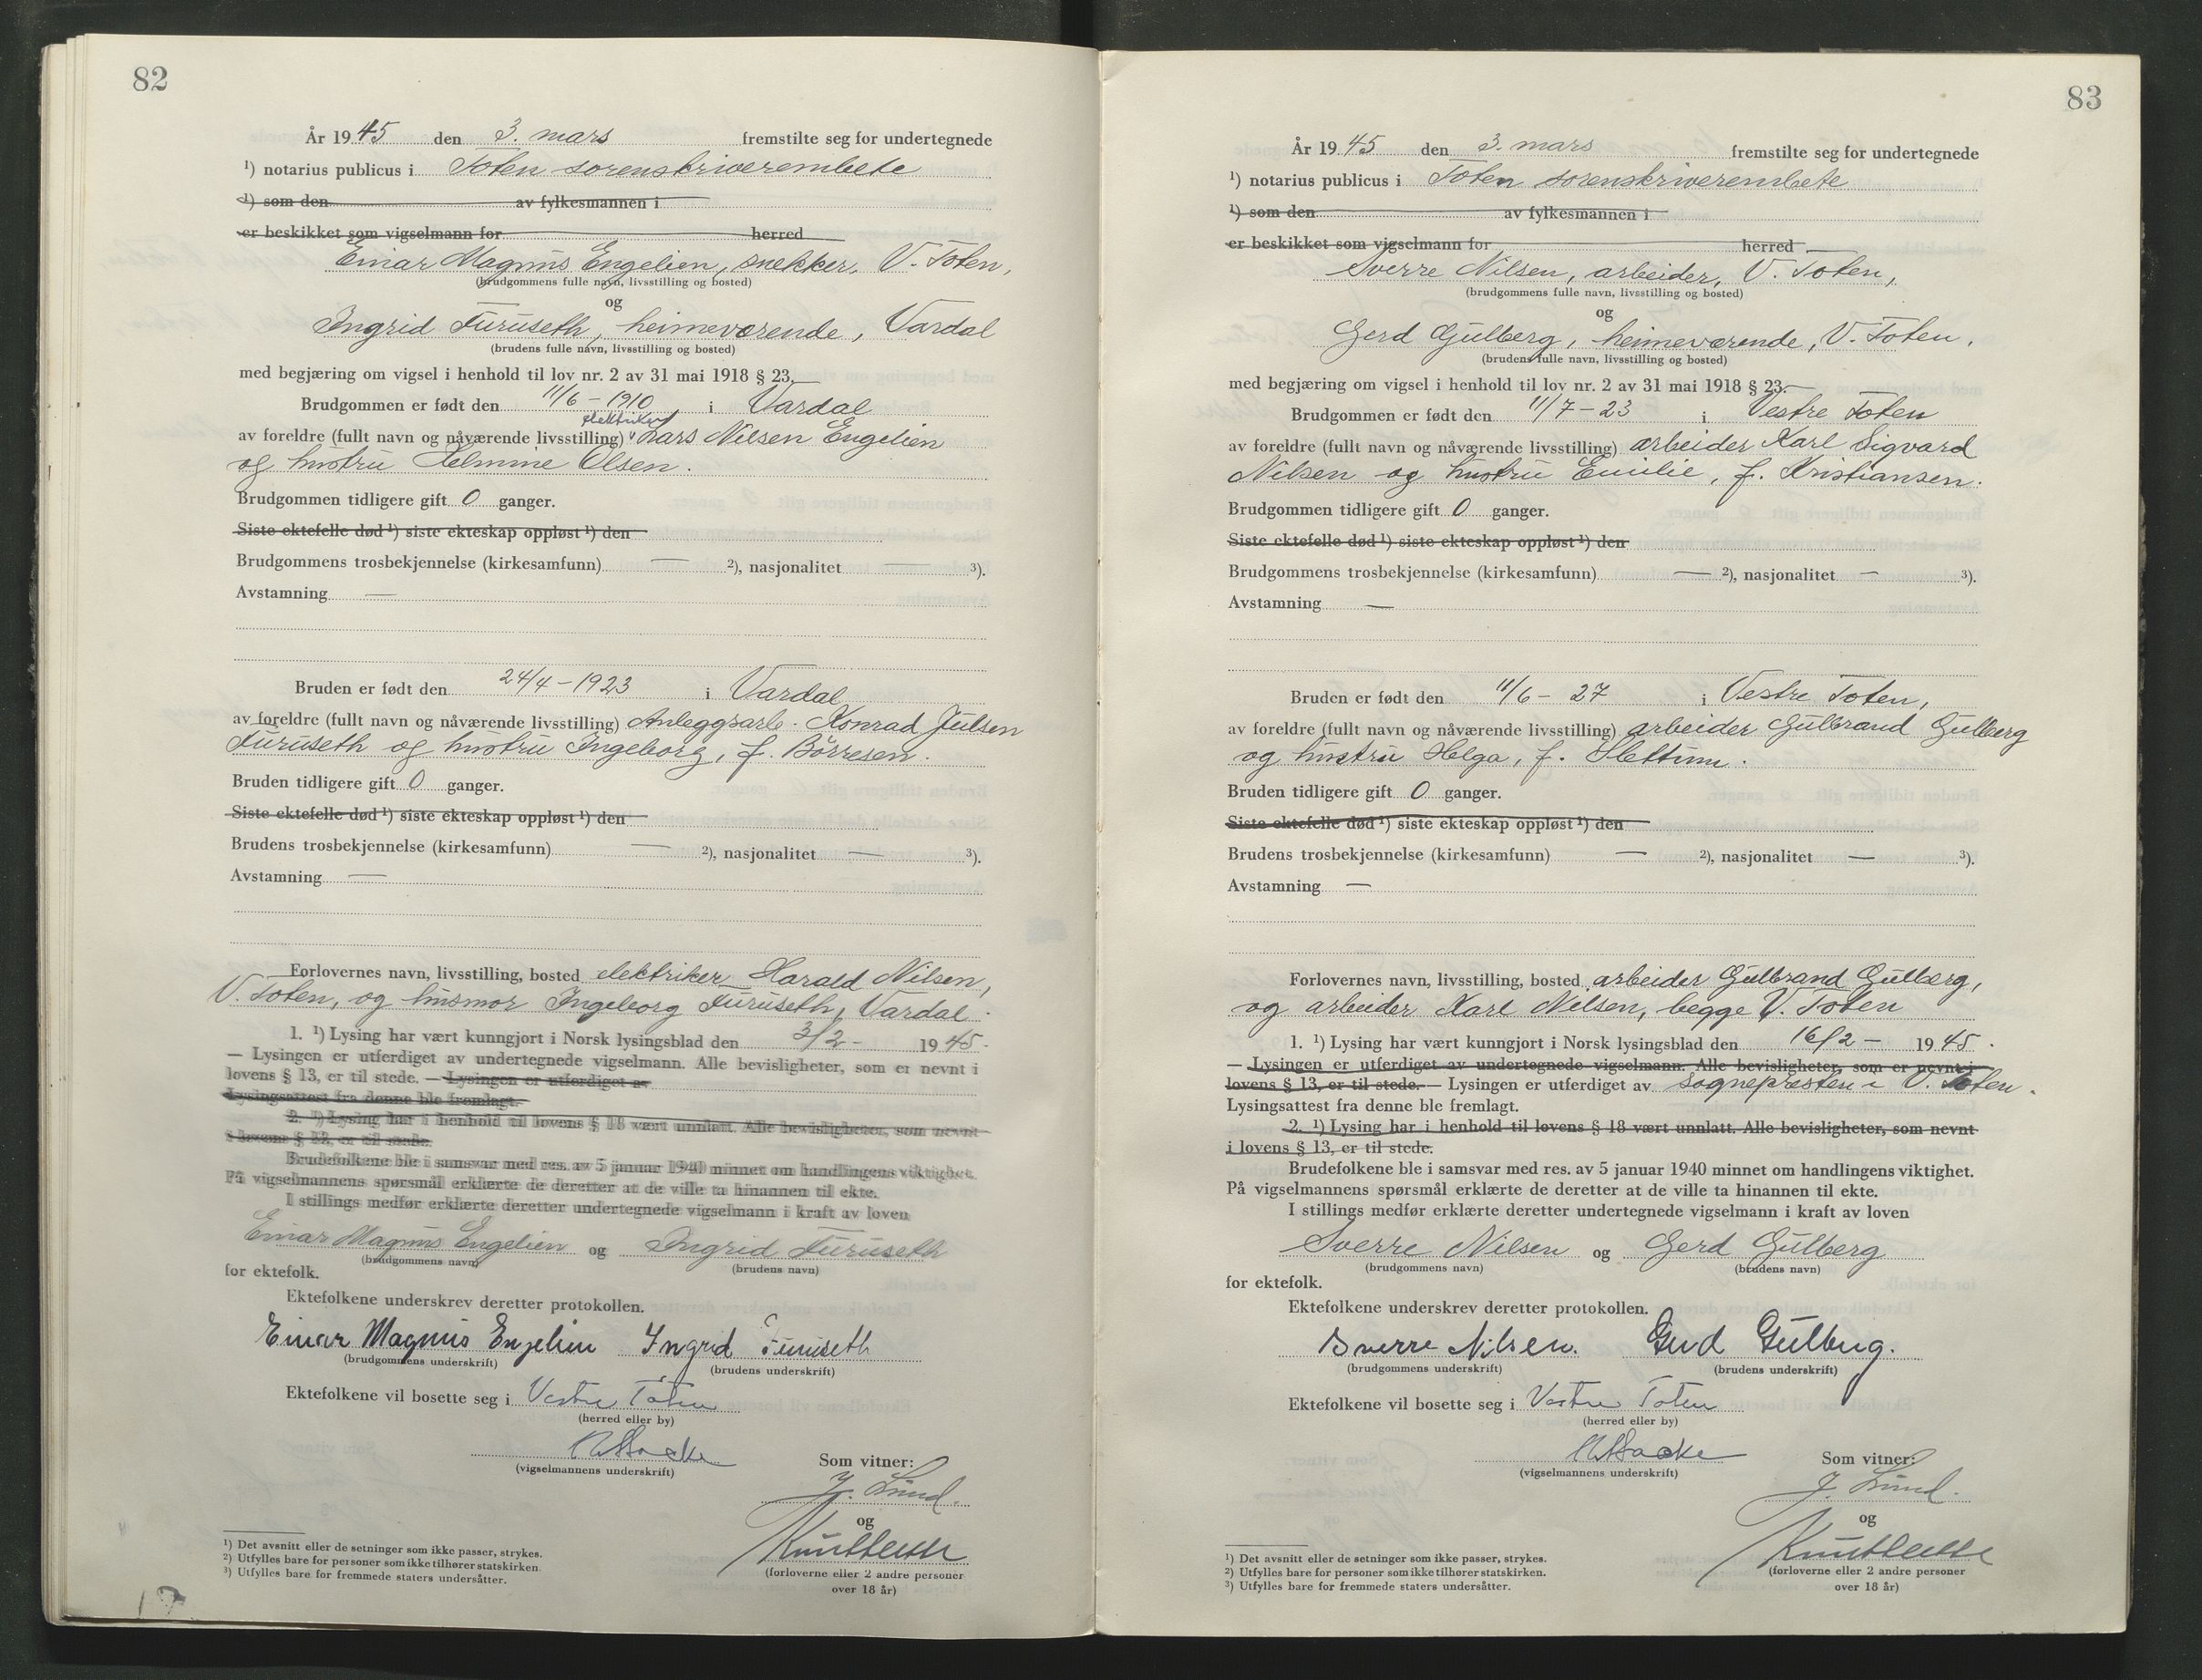 82
År 1945 den 3. mars fremstilte seg for undertegnede
¹) notarius publicus i Toten sorenskriverembete
¹) som den av fylkesmannen i
er beskikket som vigselmann for herred
Einar Magnus Engelien, snekker, V. Toten,
(brudgommens fulle navn, livsstilling og bosted)
og
Ingrid Furuseth, heimeværende, Vardal
(brudens fulle navn, livsstilling og bosted)
med begjæring om vigsel i henhold til lov nr. 2 av 31 mai 1918 § 23.
Brudgommen er født den 11/6 - 1910 i Vardal
elektriker
av foreldre (fullt navn og nåværende livsstilling) Lars Nilsen Engelien
og hustru Helmine Olsen.
Brudgommen tidligere gift 0 ganger.
Siste ektefelle død ¹) siste ekteskap oppløst ¹) den
Brudgommens trosbekjennelse (kirkesamfunn) — ²), nasjonalitet — ³).
Avstamning —
Bruden er født den 24/4 - 1923 i Vardal
av foreldre (fullt navn og nåværende livsstilling) Anleggsarb. Konrad Julsen
Furuseth og hustru Ingeborg, f. Børresen.
Bruden tidligere gift 0 ganger.
Siste ektefelle død ¹) siste ekteskap oppløst ¹) den
Brudens trosbekjennelse (kirkesamfunn) — ²), nasjonalitet — ³).
Avstamning —
Forlovernes navn, livsstilling, bosted elektriker Harald Nilsen,
V. Toten, og husmor Ingeborg Furuseth, Vardal.
1. ¹) Lysing har vært kunngjort i Norsk lysingsblad den 3/2 - 1945.
— Lysingen er utferdiget av undertegnede vigselmann. Alle bevisligheter, som er nevnt i
lovens § 13, er til stede. — Lysingen er utferdiget av
Lysingsattest fra denne ble fremlagt.
2. ¹) Lysing har i henhold til lovens § 18 vært unnlatt. Alle bevisligheter, som nevnt
i lovens § 13, er til stede.
Brudefolkene ble i samsvar med res. av 5 januar 1940 minnet om handlingens viktighet.
På vigselmannens spørsmål erklærte de deretter at de ville ta hinannen til ekte.
I stillings medfør erklærte deretter undertegnede vigselmann i kraft av loven
Einar Magnus Engelien og Ingrid Furuseth
(brudgommens navn) (brudens navn)
for ektefolk.
Ektefolkene underskrev deretter protokollen.
Einar Magnus Engelien Ingrid Furuseth
(brudgommens underskrift) (brudens underskrift)
Ektefolkene vil bosette seg i Vestre Toten
(herred eller by)
(vigselmannens underskrift)
Som vitner:
J. Lund.
og
(forloverne eller 2 andre personer
over 18 år)
¹) Det avsnitt eller de setninger som ikke passer, strykes.
²) Utfylles bare for personer som ikke tilhører statskirken.
³) Utfylles bare for fremmede staters undersåtter.
83
År 1945 den 3. mars fremstilte seg for undertegnede
¹) notarius publicus i Toten sorenskriverembete
¹) som den av fylkesmannen i
er beskikket som vigselmann for herred
Sverre Nilsen, arbeider, V. Toten,
(brudgommens fulle navn, livsstilling og bosted)
og
Gerd Gulberg, heimeværende, V. Toten.
(brudens fulle navn, livsstilling og bosted)
med begjæring om vigsel i henhold til lov nr. 2 av 31 mai 1918 § 23.
Brudgommen er født den 11/7 - 23 i Vestre Toten
av foreldre (fullt navn og nåværende livsstilling) arbeider Karl Sigvard
Nilsen og hustru Emilie, f. Kristiansen.
Brudgommen tidligere gift 0 ganger.
Siste ektefelle død ¹) siste ekteskap oppløst ¹) den
Brudgommens trosbekjennelse (kirkesamfunn) — ²), nasjonalitet — ³).
Avstamning —
Bruden er født den 11/6 - 27 i Vestre Toten,
av foreldre (fullt navn og nåværende livsstilling) arbeider Gulbrand Gulberg
og hustru Helga, f. Slettum.
Bruden tidligere gift 0 ganger.
Siste ektefelle død ¹) siste ekteskap oppløst ¹) den
Brudens trosbekjennelse (kirkesamfunn) — ²), nasjonalitet — ³).
Avstamning —
Forlovernes navn, livsstilling, bosted arbeider Gulbrand Gulberg,
og arbeider Karl Nilsen, begge V. Toten
1. ¹) Lysing har vært kunngjort i Norsk lysingsblad den 16/2 - 1945.
— Lysingen er utferdiget av undertegnede vigselmann. Alle bevisligheter, som er nevnt i
lovens § 13, er til stede. — Lysingen er utferdiget av sognepresten i V. Toten.
Lysingsattest fra denne ble fremlagt.
2. ¹) Lysing har i henhold til lovens § 18 vært unnlatt. Alle bevisligheter, som nevnt
i lovens § 13, er til stede.
Brudefolkene ble i samsvar med res. av 5 januar 1940 minnet om handlingens viktighet.
På vigselmannens spørsmål erklærte de deretter at de ville ta hinannen til ekte.
I stillings medfør erklærte deretter undertegnede vigselmann i kraft av loven
Sverre Nilsen og Gerd Gulberg
(brudgommens navn) (brudens navn)
for ektefolk.
Ektefolkene underskrev deretter protokollen.
Sverre Nilsen. Gerd Gulberg.
(brudgommens underskrift) (brudens underskrift)
Ektefolkene vil bosette seg i Vestre Toten
(herred eller by)
(vigselmannens underskrift)
Som vitner:
J. Lund.
og
(forloverne eller 2 andre personer
over 18 år)
¹) Det avsnitt eller de setninger som ikke passer, strykes.
²) Utfylles bare for personer som ikke tilhører statskirken.
³) Utfylles bare for fremmede staters undersåtter.